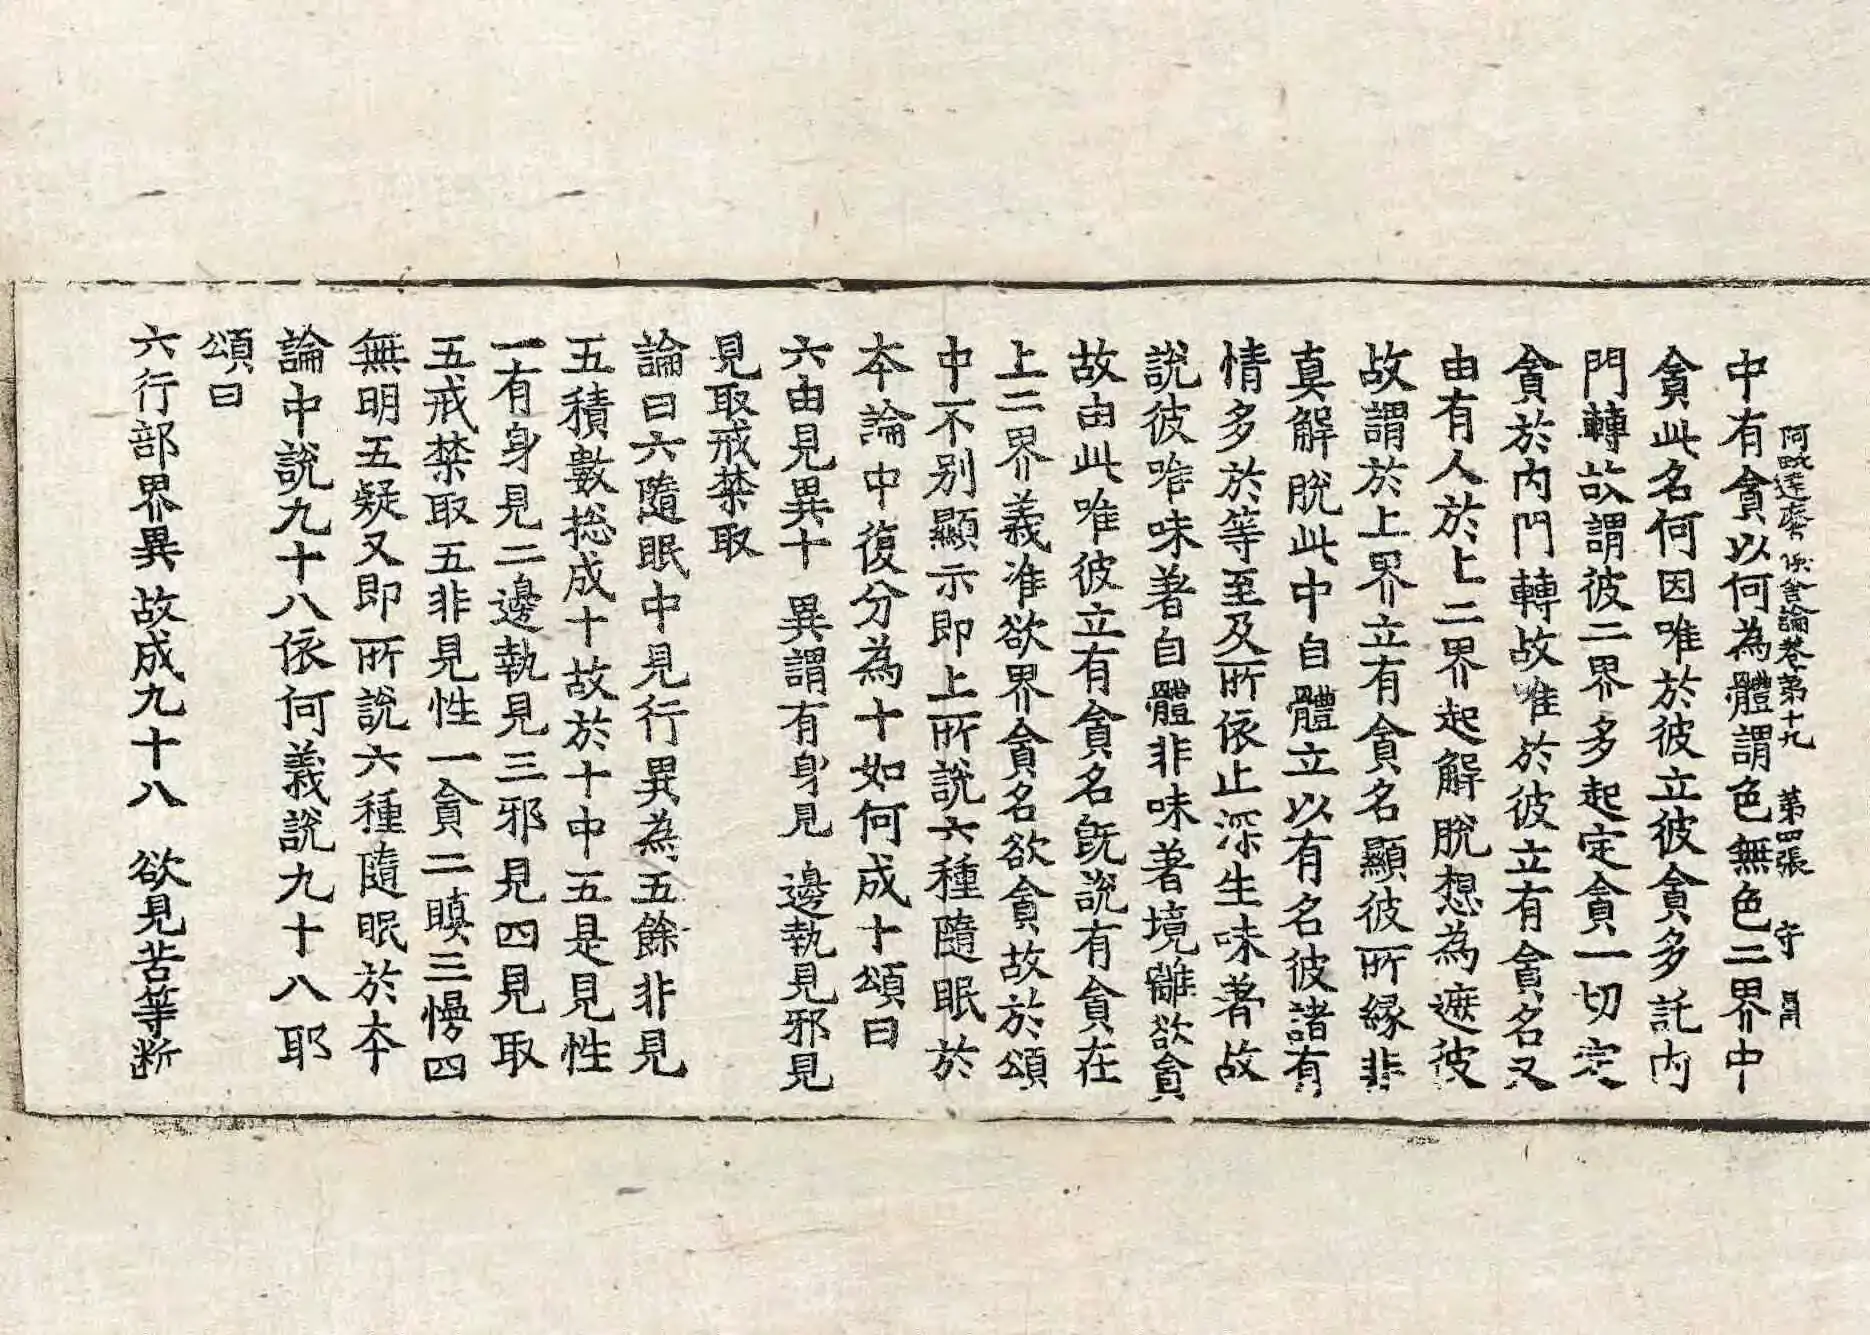 阿毗達磨俱舍論卷第十九 第四張 守 昌
中有貪以何為體謂色無色二界中
貪此名何因唯於彼立彼貪多託內
門轉故謂彼二界多起定貪一切定
貪於內門轉故唯於彼立有貪名又
由有人於上二界起解脫想為遮彼
故謂於上界立有貪名顯彼所緣非
真解脫此中自體立以有名彼諸有
情多於等至及所依止深生味著故
說彼唯味著自體非味著境離欲貪
故由此唯彼立有貪名旣說有貪在
上二界義准欲界貪名欲貪故於頌
中不別顯示即上所說六種隨眠於
本論中復分為十如何成十頌曰
六由見異十 異謂有身見 邊執見邪見
見取戒禁取
論曰六隨眠中見行異為五餘非見
五積數捴成十故於十中五是見性
一有身見二邊執見三邪見四見取
五戒禁取五非見性一貪二瞋三慢四
無明五疑又即所說六種隨眠於本
論中說九十八依何義說九十八耶
頌曰
六行部界異故成九十八 欲見苦等斷